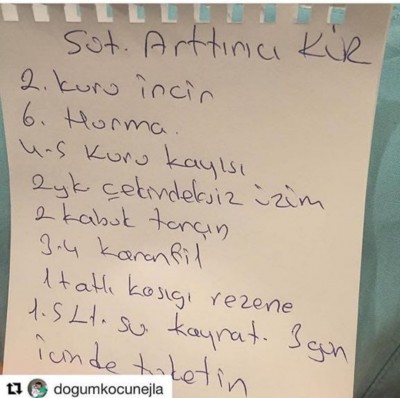 Süt. Arttırıcı KÜR
2. kuru incir
6. Hurma.
4-5 Kuru kayısı
2yk çekirdeksiz üzüm
2 kabuk tarçın
3-4 karanfil
1 tatlı kaşığı rezene
1.5 Lt. su kaynat. 3 gün
içinde tüketin
dogumkocunejla